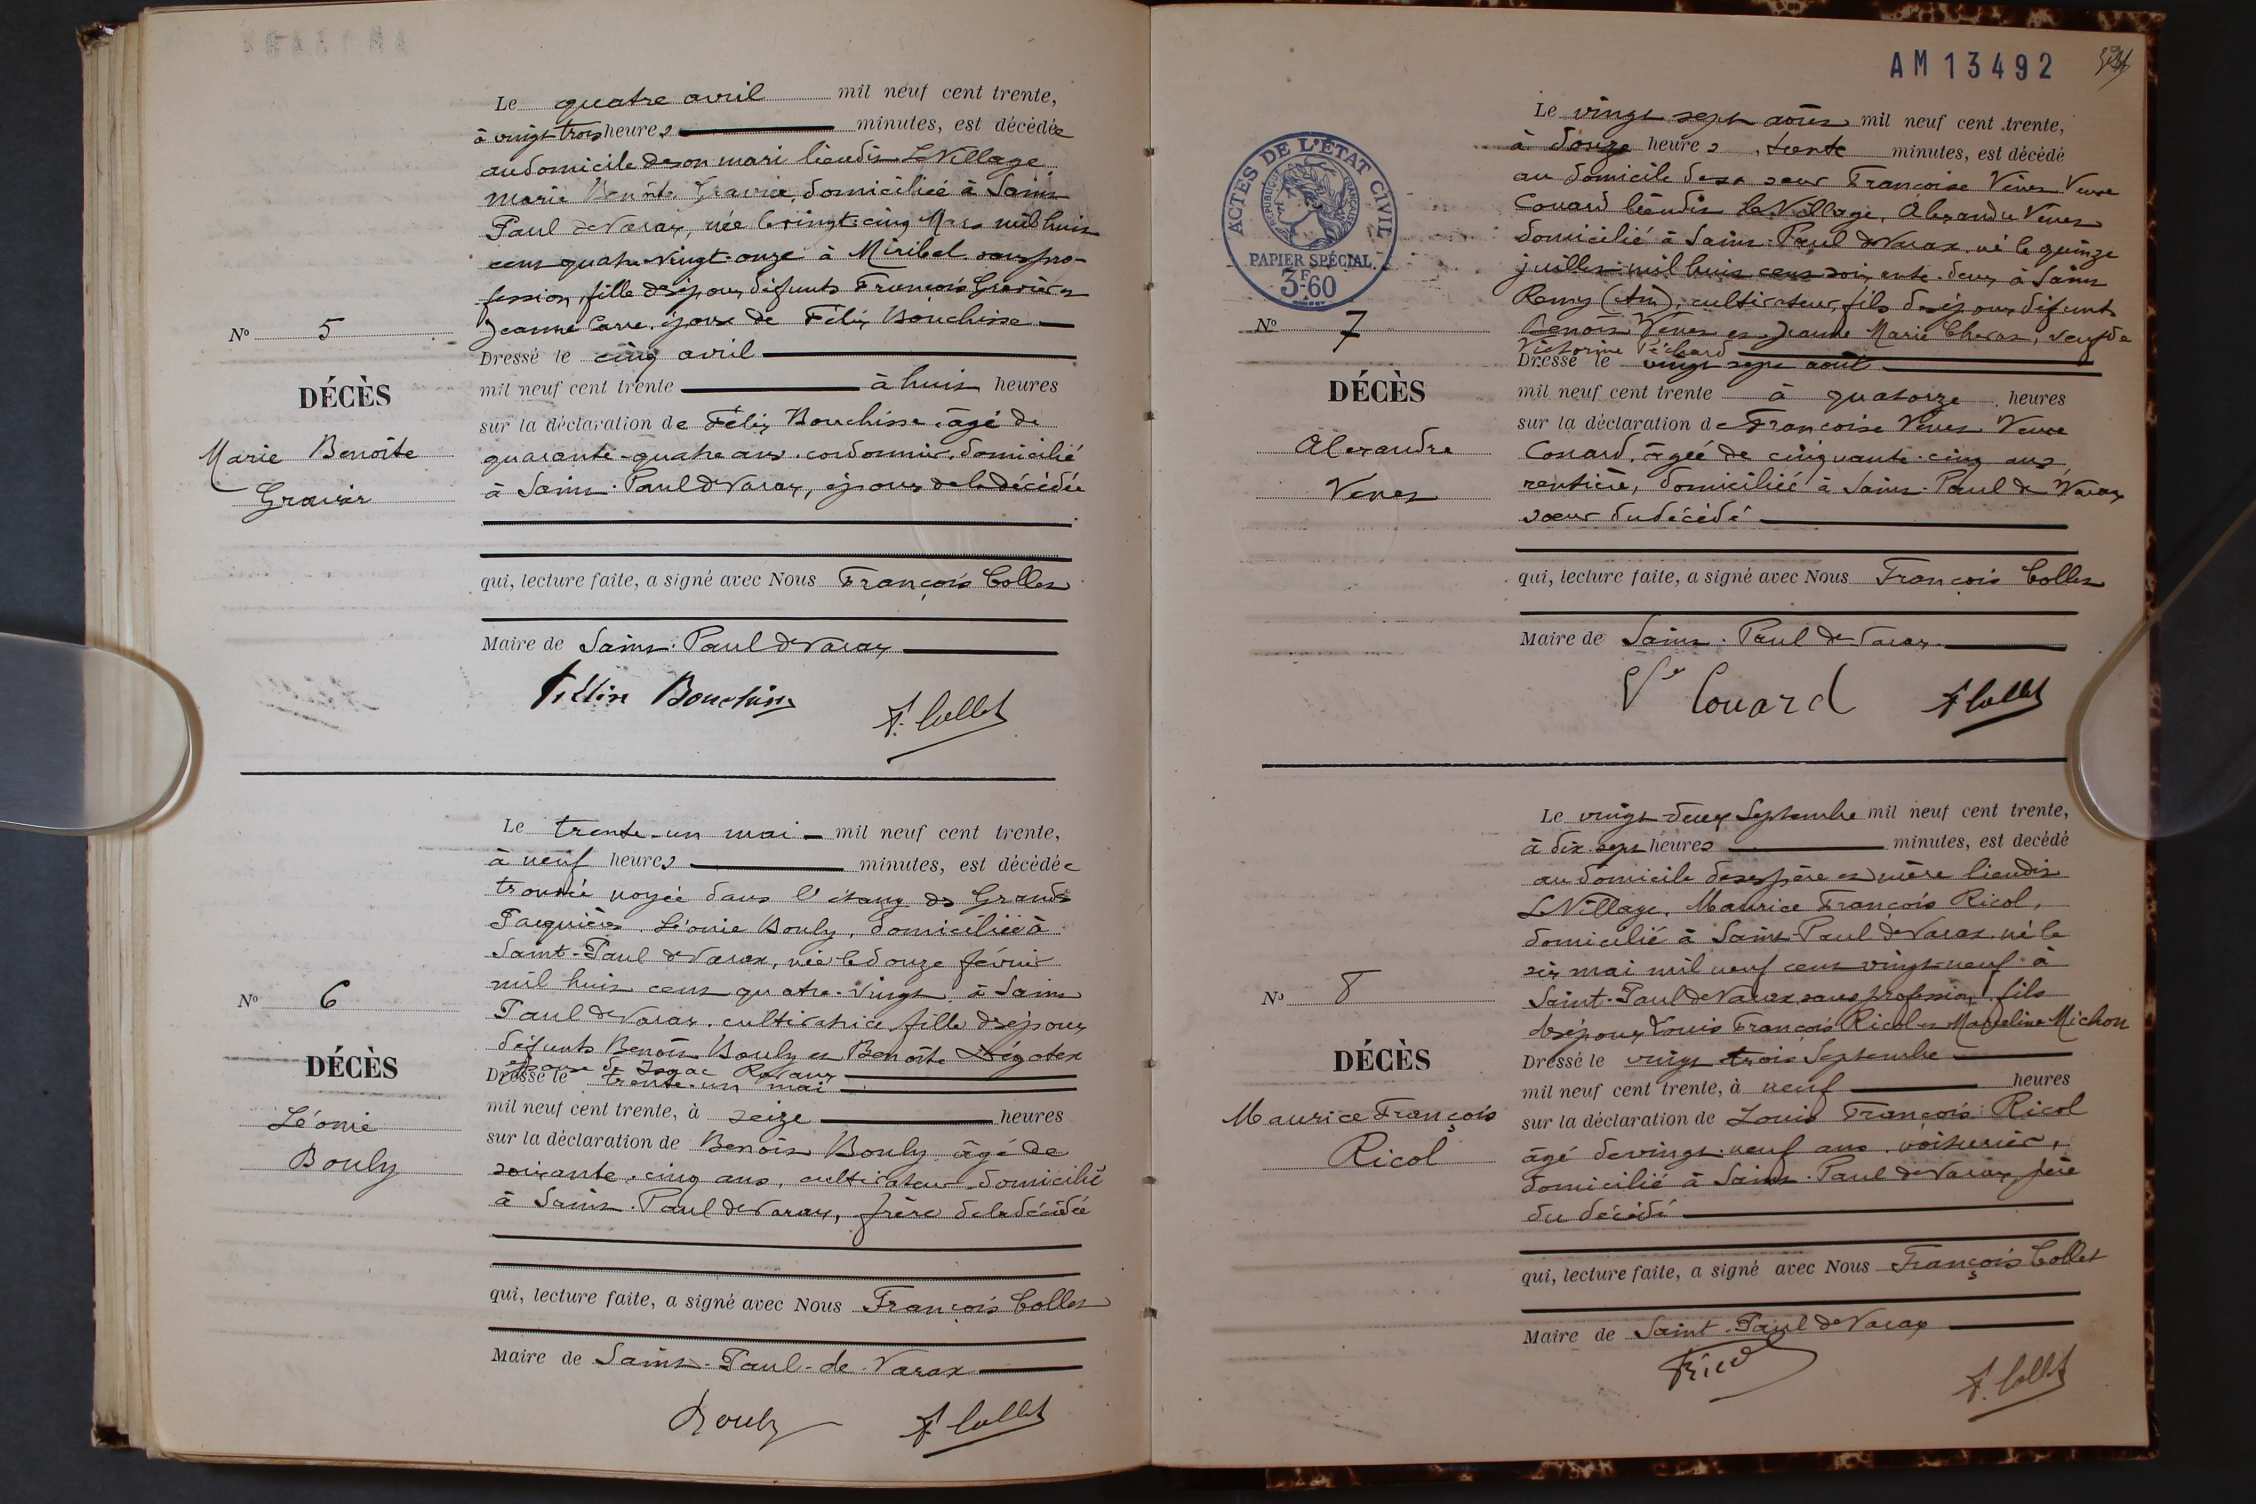 Le quatre avril mil neuf cent trente,
à vingt trois heures minutes, est décédée
au domicile de son mari lieudit Le Village
Marie Benoîte Gravier, domiciliée à Saint
Paul de Varax, née le vingt cinq Mars mil huit
cent quatre-vingt-onze à Miribel sans pro-
fession, fille des époux défunts François Gravier et
Jeanne Carre, épouse de Félix Bouchisse
Nº 5
Dressé le cinq avril
mil neuf cent trente à huit heures
DÉCÈS
sur la déclaration de Félix Bouchisse âgé de
Marie Benoîte
quarante-quatre ans, cordonnier, domicilié
Gravier
à Saint-Paul de Varax, époux de la décédée
qui, lecture faite, a signé avec Nous François Collet
Maire de Saint-Paul de Varax
Bouchisse
F. Collet
Le trente-un mai mil neuf cent trente,
à neuf heures minutes, est décédée
trouvée noyée dans l'étang des Grands
Léonie Bouly, domiciliée à
Saint-Paul de Varax, née le douze février
mil huit cent quatre-vingt à Saint
Nº 6
Paul de Varax, cultivatrice, fille des époux
défunts Benoît Bouly et Benoîte
épouse de Isaac
DÉCÈS
Dressé le trente-un mai
mil neuf cent trente, à seize heures
Léonie
sur la déclaration de Benoît Bouly âgé de
Bouly
soixante-cinq ans, cultivateur domicilié
à Saint-Paul de Varax, frère de la décédée
qui, lecture faite, a signé avec Nous François Collet
Maire de Saint-Paul-de Varax
Bouly
F. Collet
AM13492
Le vingt sept août mil neuf cent trente,
à douze heures trente minutes, est décédé
au domicile de sa sœur Françoise Vénes Veuve
Couard lieudit le Village, Alexandre Vénes
domicilié à Saint-Paul de Varax né le quinze
juillet mil huit cent soixante-deux à Saint
Remy (Ain), cultivateur, fils des époux défunts
Benoît Vénes et Jeanne Marie veuf de
Victorine
ACTES DE L'ÉTAT CIVIL
RÉPUBLIQUE FRANÇAISE
PAPIER SPÉCIAL
3F60
Nº 7
Dressé le vingt sept août
DÉCÈS
mil neuf cent trente à quatorze heures
sur la déclaration de Françoise Vénes Veuve
Alexandre
Couard, âgée de cinquante-cinq ans,
Vénes
rentière, domiciliée à Saint-Paul de Varax
sœur du décédé
qui, lecture faite, a signé avec Nous François Collet
Maire de Saint-Paul de Varax
Ve Couard
F Collet
Le vingt-deux Septembre mil neuf cent trente,
à dix-sept heures minutes, est décédé
au domicile de ses père et mère lieudit
Le Village, Maurice François Ricol,
domicilié à Saint-Paul de Varax né le
six mai mil neuf cent vingt-neuf à
Nº 8
Saint-Paul de Varax, sans profession, fils
des époux Louis François Ricol et Marceline Michon
DÉCÈS
Dressé le vingt trois Septembre
mil neuf cent trente, à neuf heures
Maurice François
sur la déclaration de Louis François Ricol
Ricol
âgé de vingt-neuf ans, voiturier,
domicilié à Saint-Paul de Varax, père
du décédé
qui, lecture faite, a signé avec Nous François Collet
Maire de Saint-Paul de Varax
Ricol
F. Collet